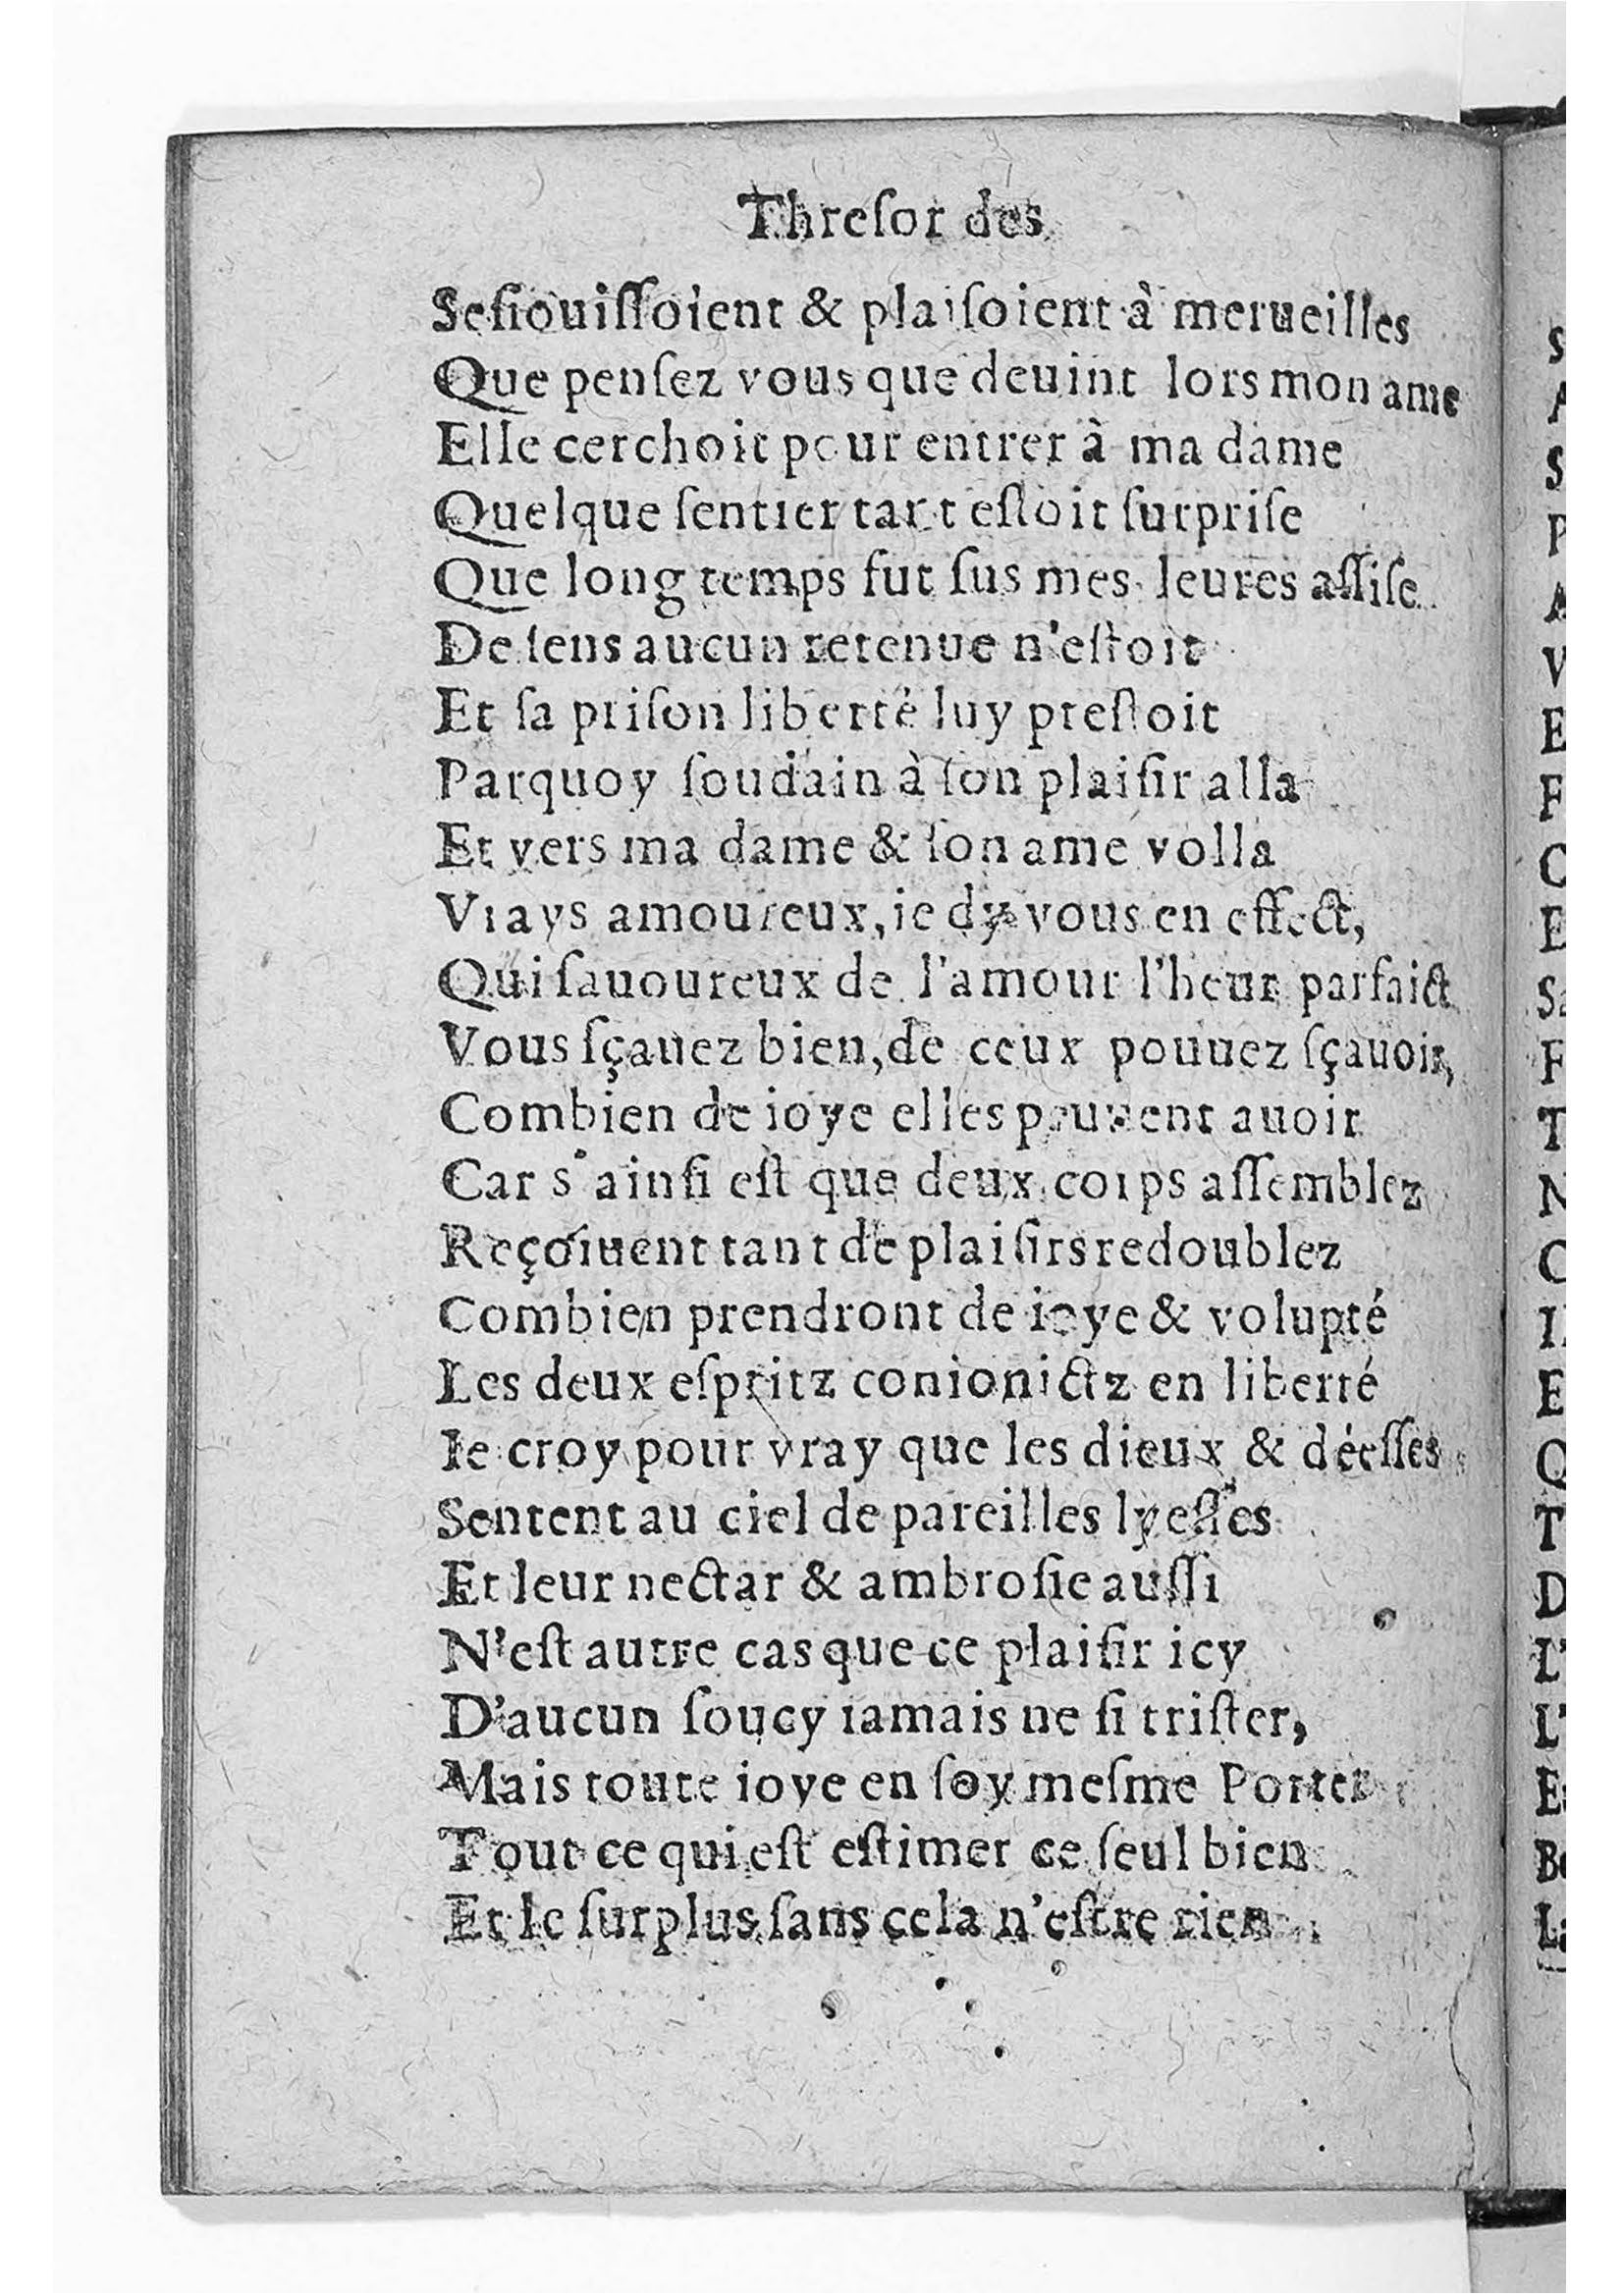 Threſor des
Seſiouiſſoient & plaiſoient à merueilles
Que penſez vous que deuint lors mon ame
Elle cerchoit pour entrer à ma dame
Quelque ſentier tant eſtoit ſurpriſe
Que long temps fut ſus mes leures aſſiſe
De ſens aucun retenue n'eſtoit
Et ſa priſon liberté luy preſtoit
Parquoy ſoudain à ſon plaiſir alla
Et vers ma dame & ſon ame volla
Vrays amoureux, ie dy vous en effect,
Qui ſauoureux de l'amour l'heur parfaict
Vous ſçauez bien, de ceux pouuez ſçauoir,
Combien de ioye elles peuuent auoir
Car s'ainſi eſt que deux corps aſſemblez
Reçoiuent tant de plaiſirs redoublez
Combien prendront de ioye & volupté
Les deux eſpritz conionictz en liberté
Ie croy pour vray que les dieux & déeſſes
Sentent au ciel de pareilles lyeſſes
Et leur nectar & ambroſie auſſi
N'eſt autre cas que ce plaiſir icy
D'aucun ſoucy iamais ne ſi triſter,
Mais toute ioye en ſoy meſme Porter
Tout ce qui eſt eſtimer ce ſeul bien
Et le ſurplus ſans cela n'eſtre rien